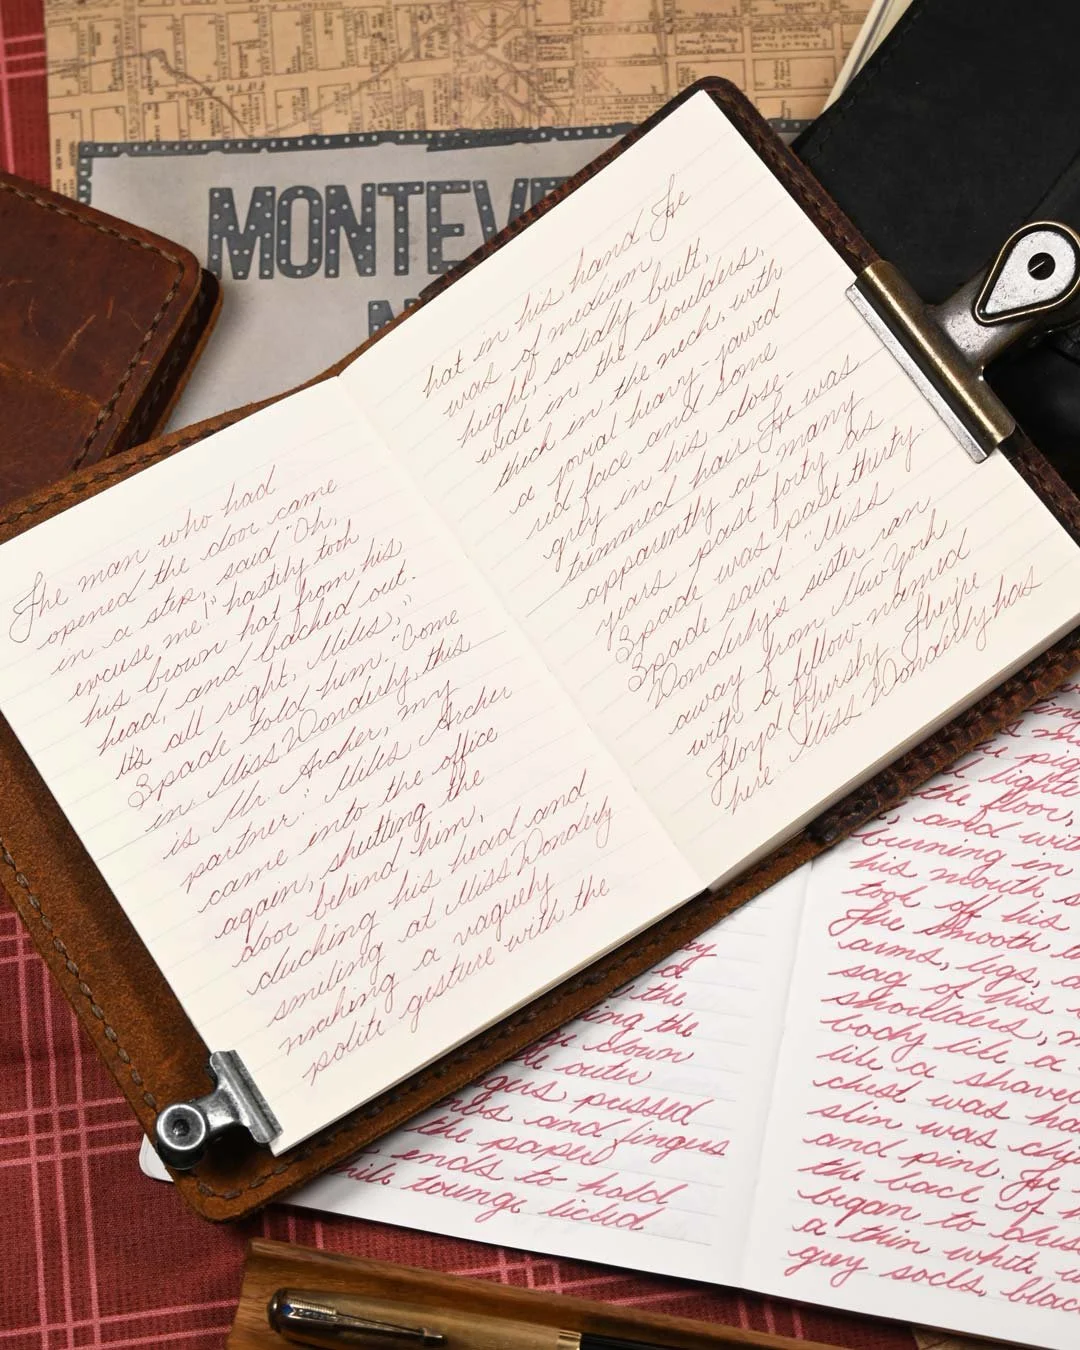 MONTEV
The man who had
opened the door came
in a step, said "Oh,
excuse me!" hastily took
his brown hat from his
head, and backed out.
"It's all right, Miles,"
Spade told him. "Come
in. Miss Wonderly, this
is Mr. Archer, my
partner." Miles Archer
came into the office
again, shutting the
door behind him,
ducking his head and
smiling at Miss Wonderly
making a vaguely
polite gesture with the
hat in his hand. He
was of medium
height, solidly built,
wide in the shoulders,
thick in the neck, with
a jovial heavy-jawed
red face and some
grey in his close-
trimmed hair. He was
apparently as many
years past forty as
Spade was past thirty.
Spade said: "Miss
Wonderly's sister ran
away from New York
with a fellow named
Floyd Thursby. They're
here. Miss Wonderly has
the
ing the
down
outer
pressed
and fingers
the paper
ends to hold
tounge licked
the floor,
and with
burning in
his mouth, s
took off his
The smooth
arms, legs, a
sag of his
shoulders, m
body like a
like a shaved
chest was ha
skin was
and pink. He
the back of h
began to
a thin white u
grey socks, black